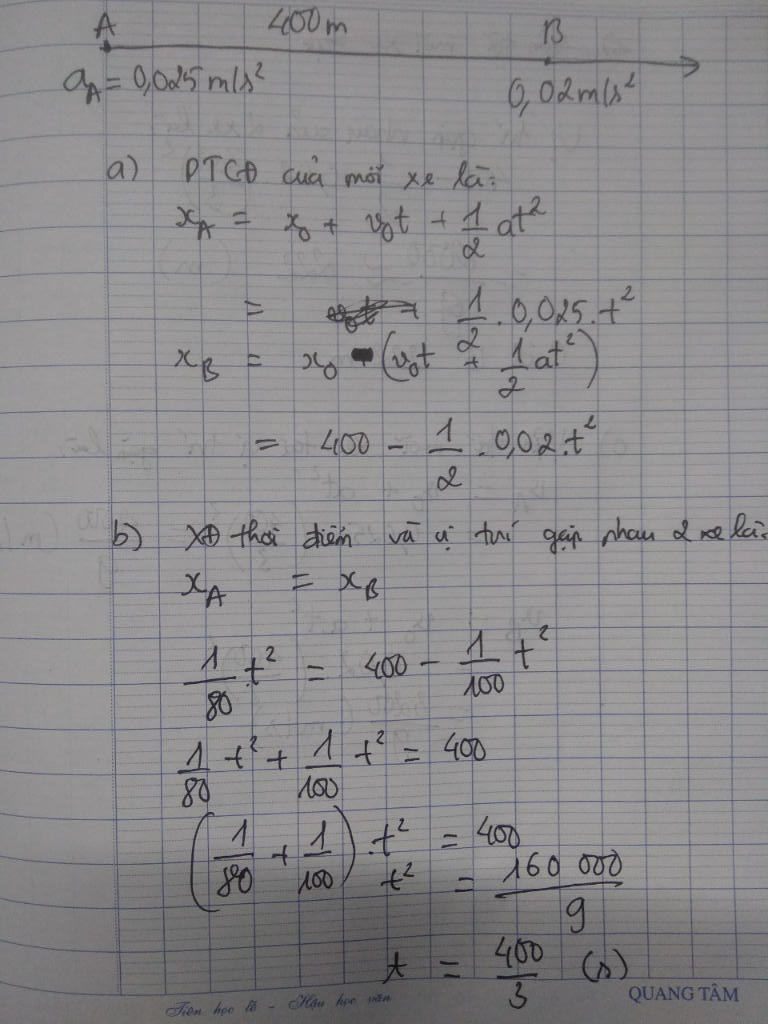 A 400m B
a_A = 0,025 m/s² 0,02 m/s²
a) PTCĐ của mỗi xe là:
x_A = x₀ + v₀t + 1/2 at²
= 1/2 . 0,025 . t²
x_B = x₀ - (v₀t + 1/2 at²)
= 400 - 1/2 . 0,02 . t²
b) XĐ thời điểm và vị trí gặp nhau 2 xe là:
x_A = x_B
1/80 t² = 400 - 1/100 t²
1/80 t² + 1/100 t² = 400
(1/80 + 1/100) . t² = 400
t² = 160 000/9
t = 400/3 (s)
Tiên học lễ - Hậu học văn QUANG TÂM